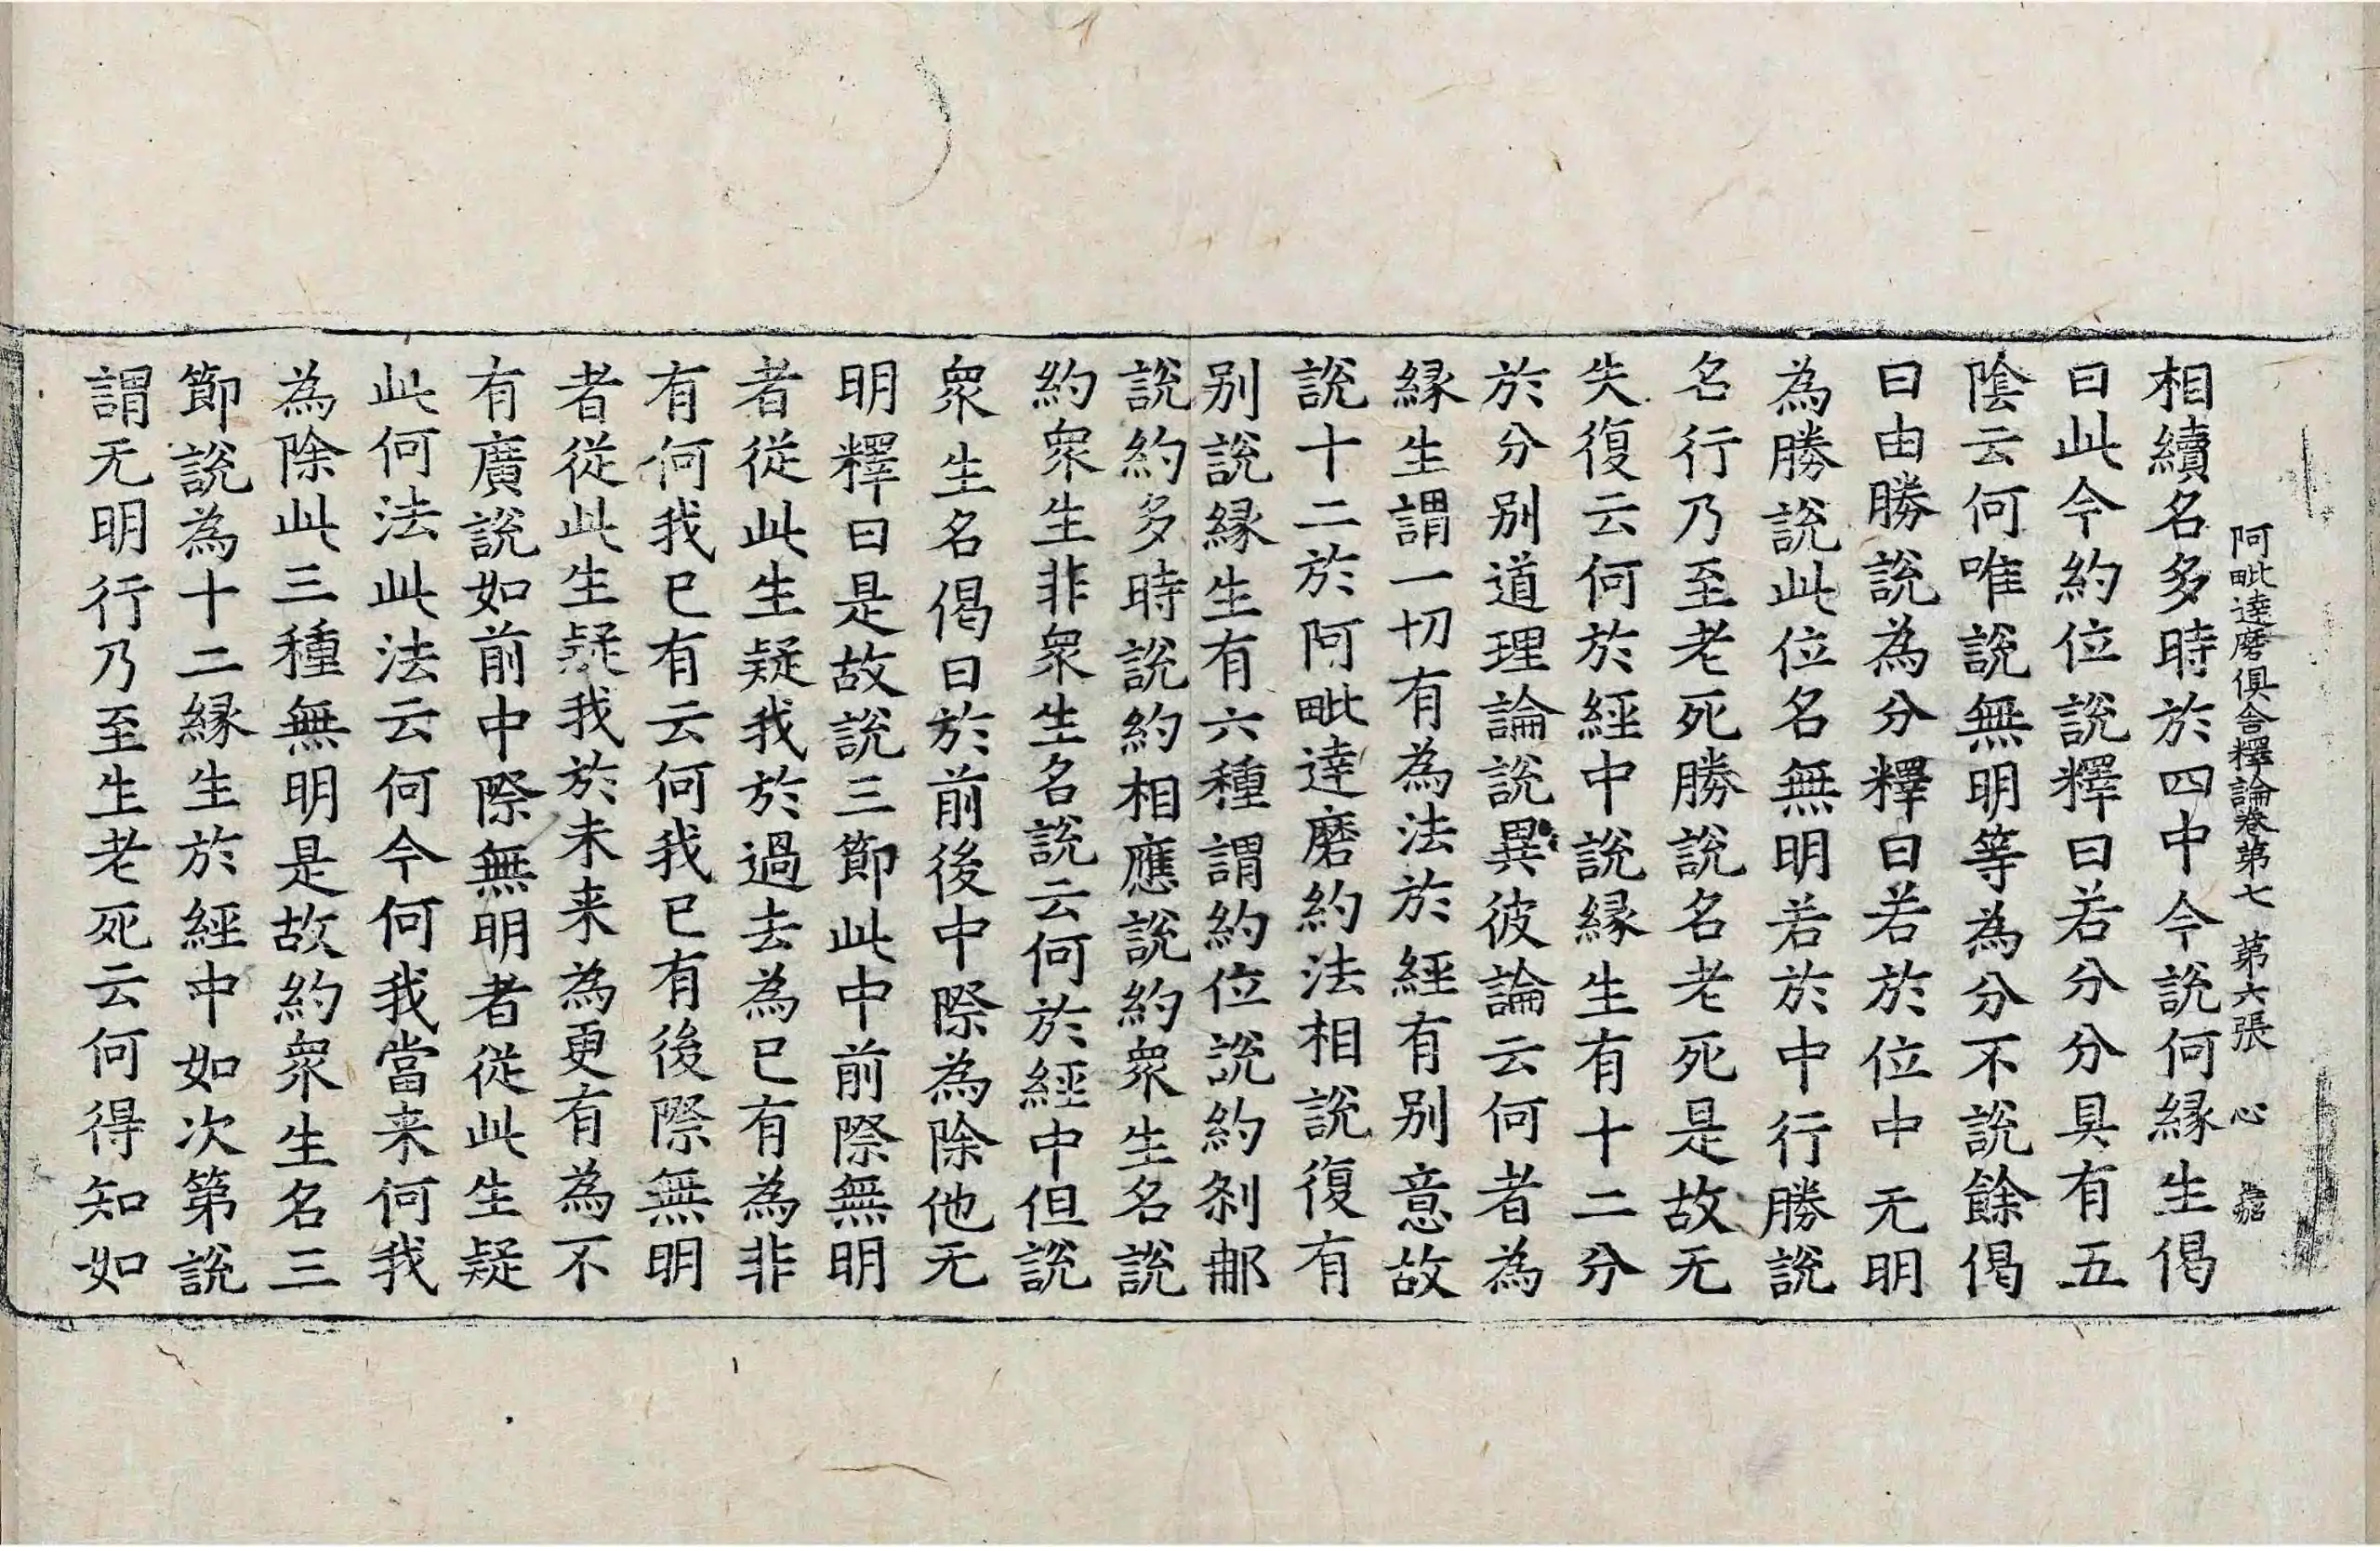 阿毗達磨俱舍釋論卷第七 第六張 心
相續名多時於四中今說何縁生偈
曰此今約位說釋曰若分分具有五
陰云何唯說無明等為分不說餘偈
曰由勝說為分釋曰若於位中无明
為勝說此位名無明若於中行勝說
名行乃至老死勝說名老死是故无
失復云何於經中說縁生有十二分
於分别道理論說異彼論云何者為
縁生謂一切有為法於經有别意故
說十二於阿毗達磨約法相說復有
别說縁生有六種謂約位說約刹那
說約多時說約相應說約衆生名說
約衆生非衆生名說云何於經中但說
衆生名偈曰於前後中際為除他无
明釋曰是故說三節此中前際無明
者從此生疑我於過去為已有為非
有何我已有云何我已有後際無明
者從此生疑我於未来為更有為不
有廣說如前中際無明者從此生疑
此何法此法云何今何我當来何我
為除此三種無明是故約衆生名三
節說為十二縁生於經中如次第說
謂无明行乃至生老死云何得知如